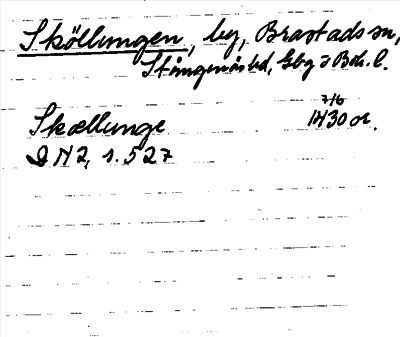 Sköllungen, by, Brastads sn,
Stångenäs hd, Gbg o Boh. l.
7/6
Skællunge 1430 or.
DN 2, s. 527